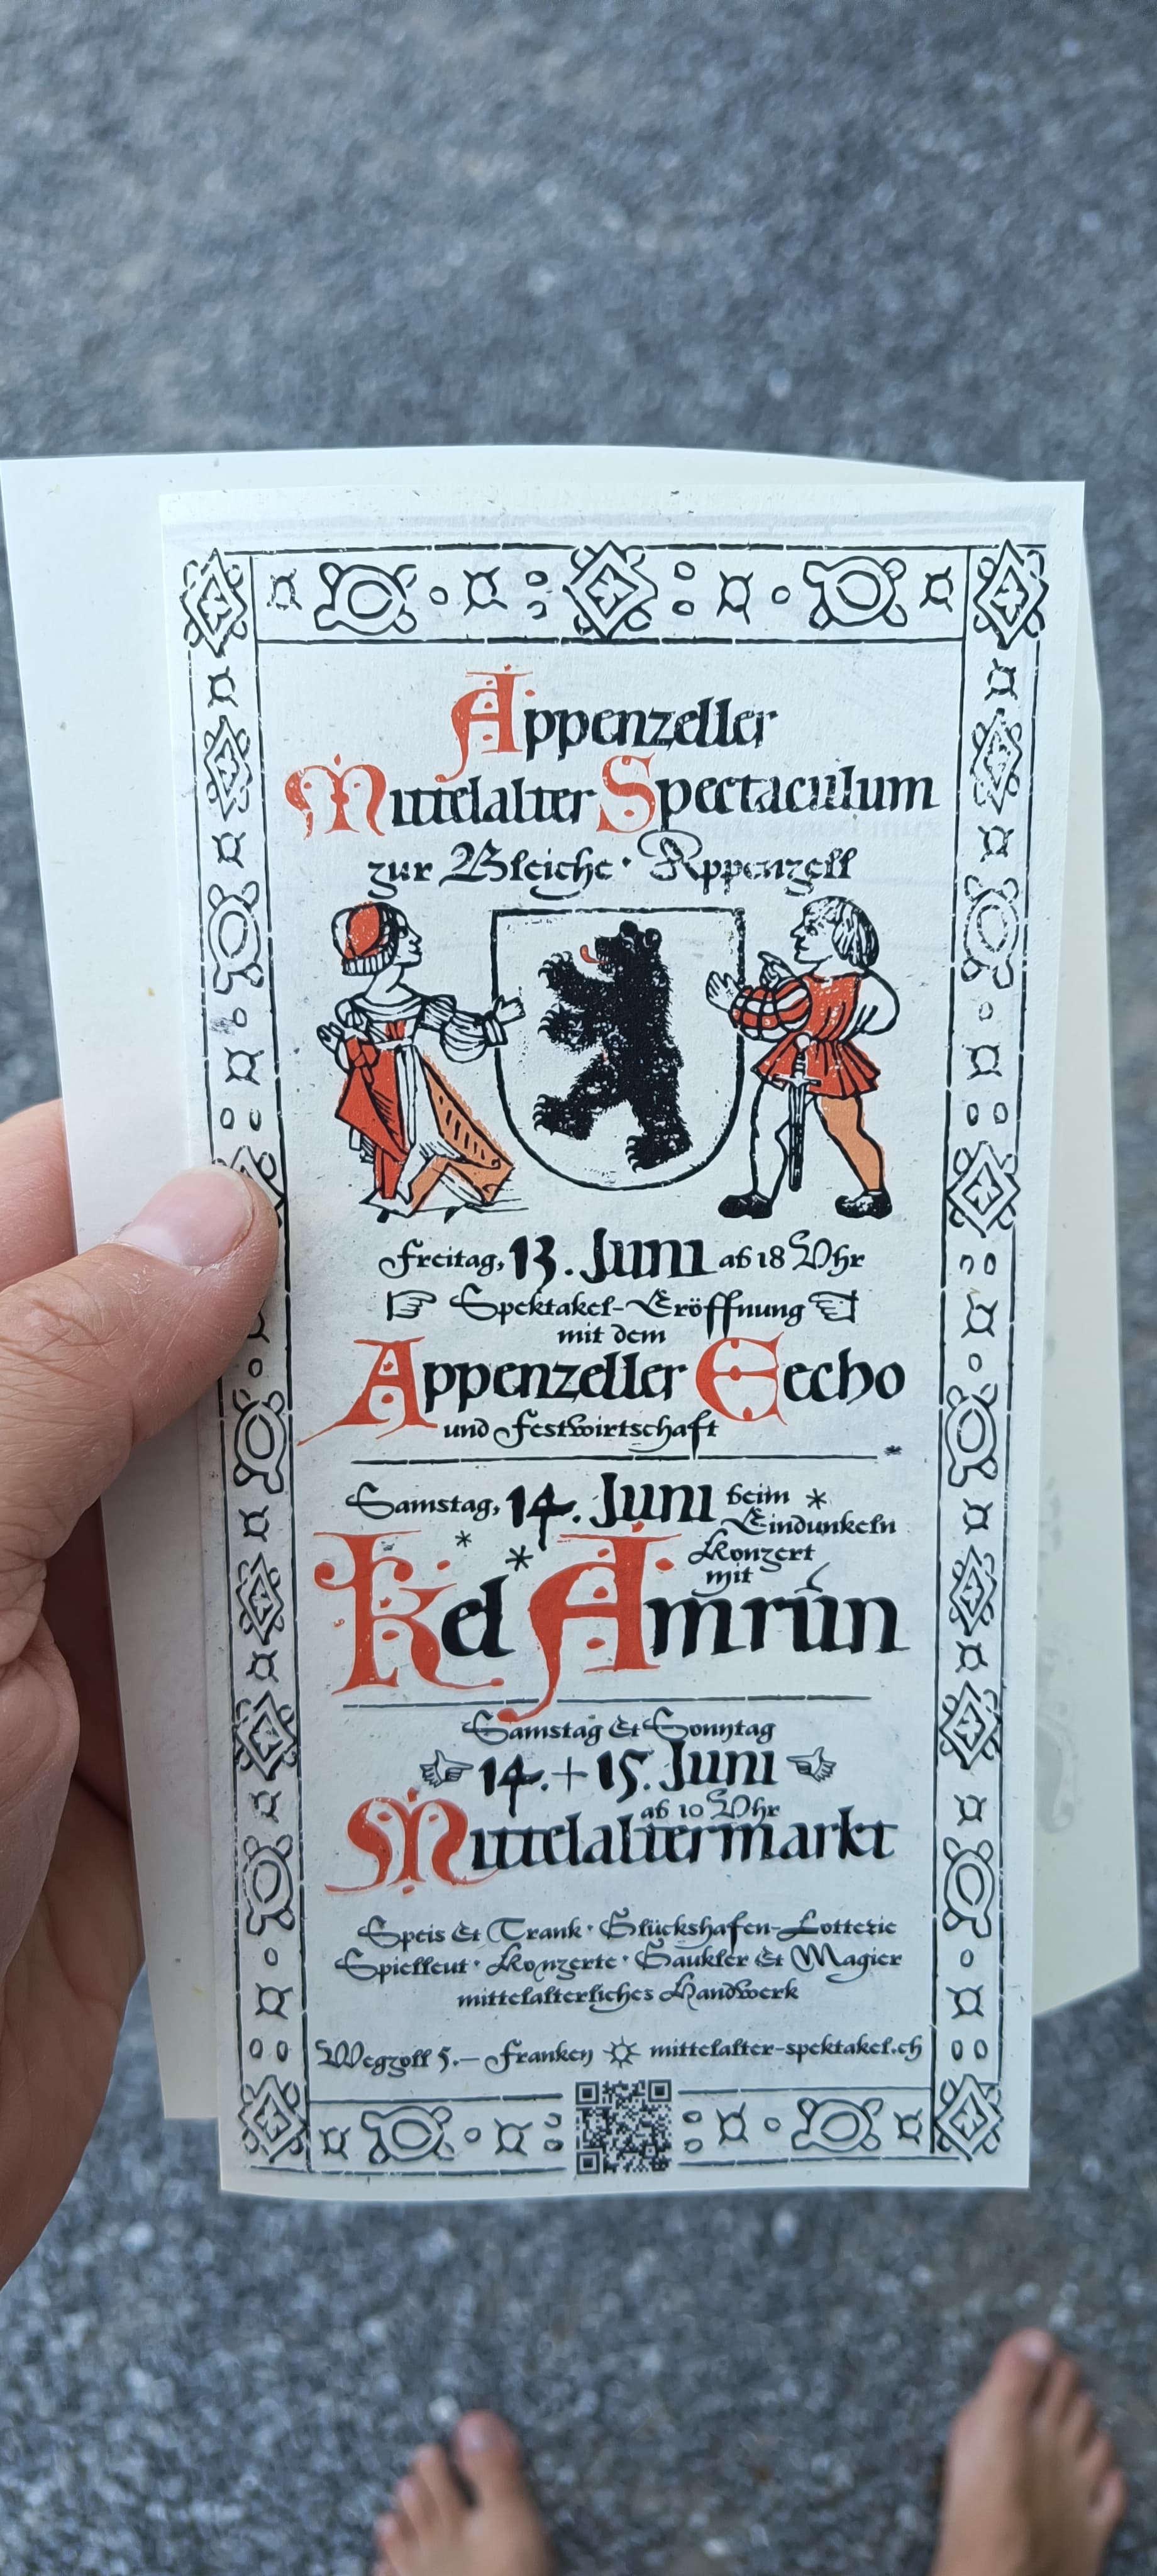 Appenzeller
Mittelalter Spectaculum
zur Bleiche · Appenzell
Freitag, 13. Juni ab 18 Uhr
Spektakel-Eröffnung
mit dem
Appenzeller Eecho
und Festwirtschaft
Samstag, 14. Juni beim
Eindunkeln
Konzert
mit
Kel Amrún
Samstag & Sonntag
14. + 15. Juni
ab 10 Uhr
Mittelaltermarkt
Speis & Trank · Glückshafen-Lotterie
Spielleut · Konzerte · Gaukler & Magier
mittelalterliches Handwerk
Wegzoll 5.– Franken mittelalter-spektakel.ch